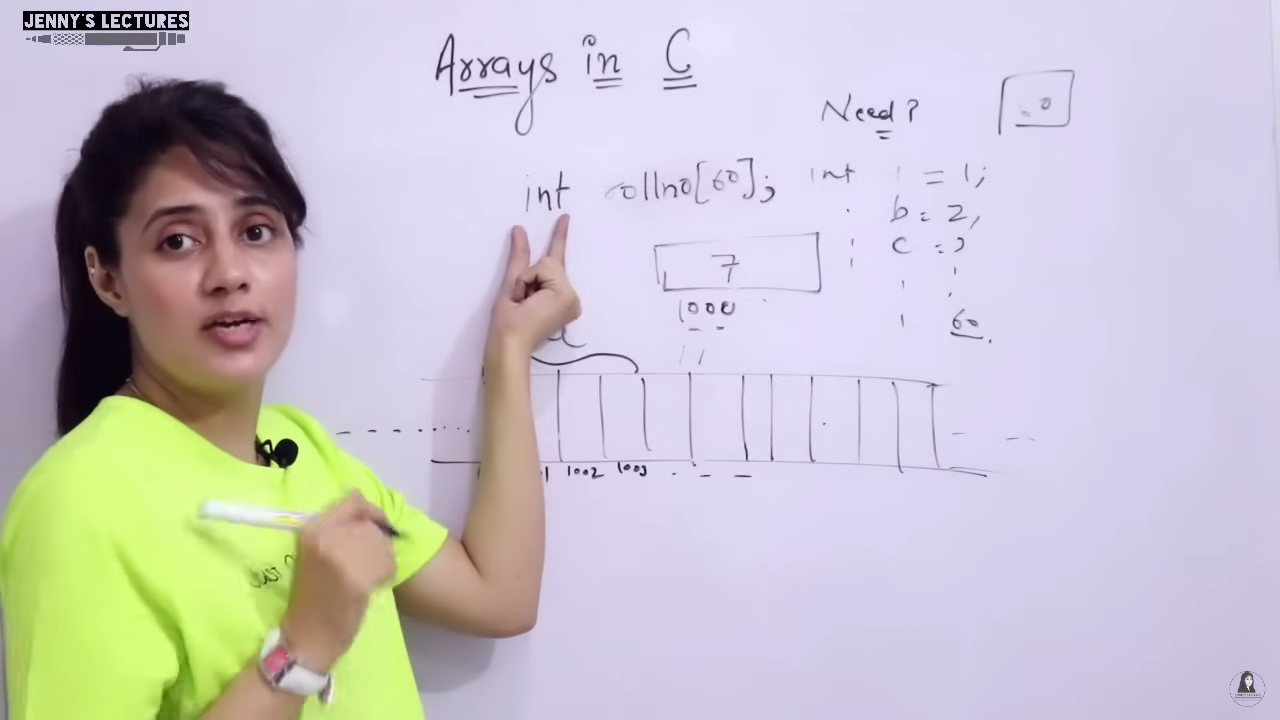 JENNY'S LECTURES
Arrays in C
Need?
int rollno[60]; int = 1;
b = 2,
c =
7
1000
60
1002 1003